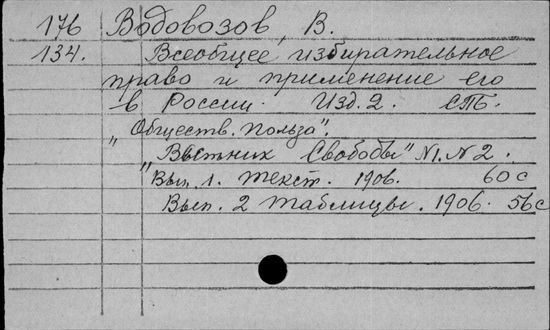 176 Водовозов, В.
134. Всеобщее избирательное
право и применение его
в России. Изд. 2. СПБ.
„Обществ. Польза".
„Вѣстник Свободы" №1. №2.
Вып. 1. Текст. 1906. 60 с
Вып. 2 Таблицы. 1906. 56 с